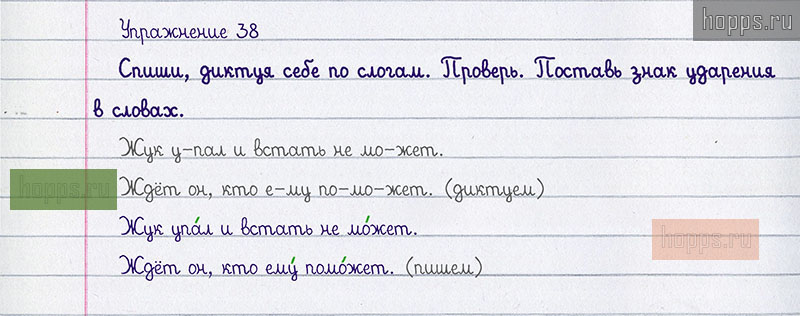 hopps.ru
Упражнение 38
Спиши, диктуя себе по слогам. Проверь. Поставь знак ударения
в словах.
Жук у-пал и встать не мо-жет.
hopps.ru
Ждёт он, кто е-му по-мо-жет. (диктуем)
Жук упа́л и встать не мо́жет.
hopps.ru
Ждёт он, кто ему́ помо́жет. (пишем)